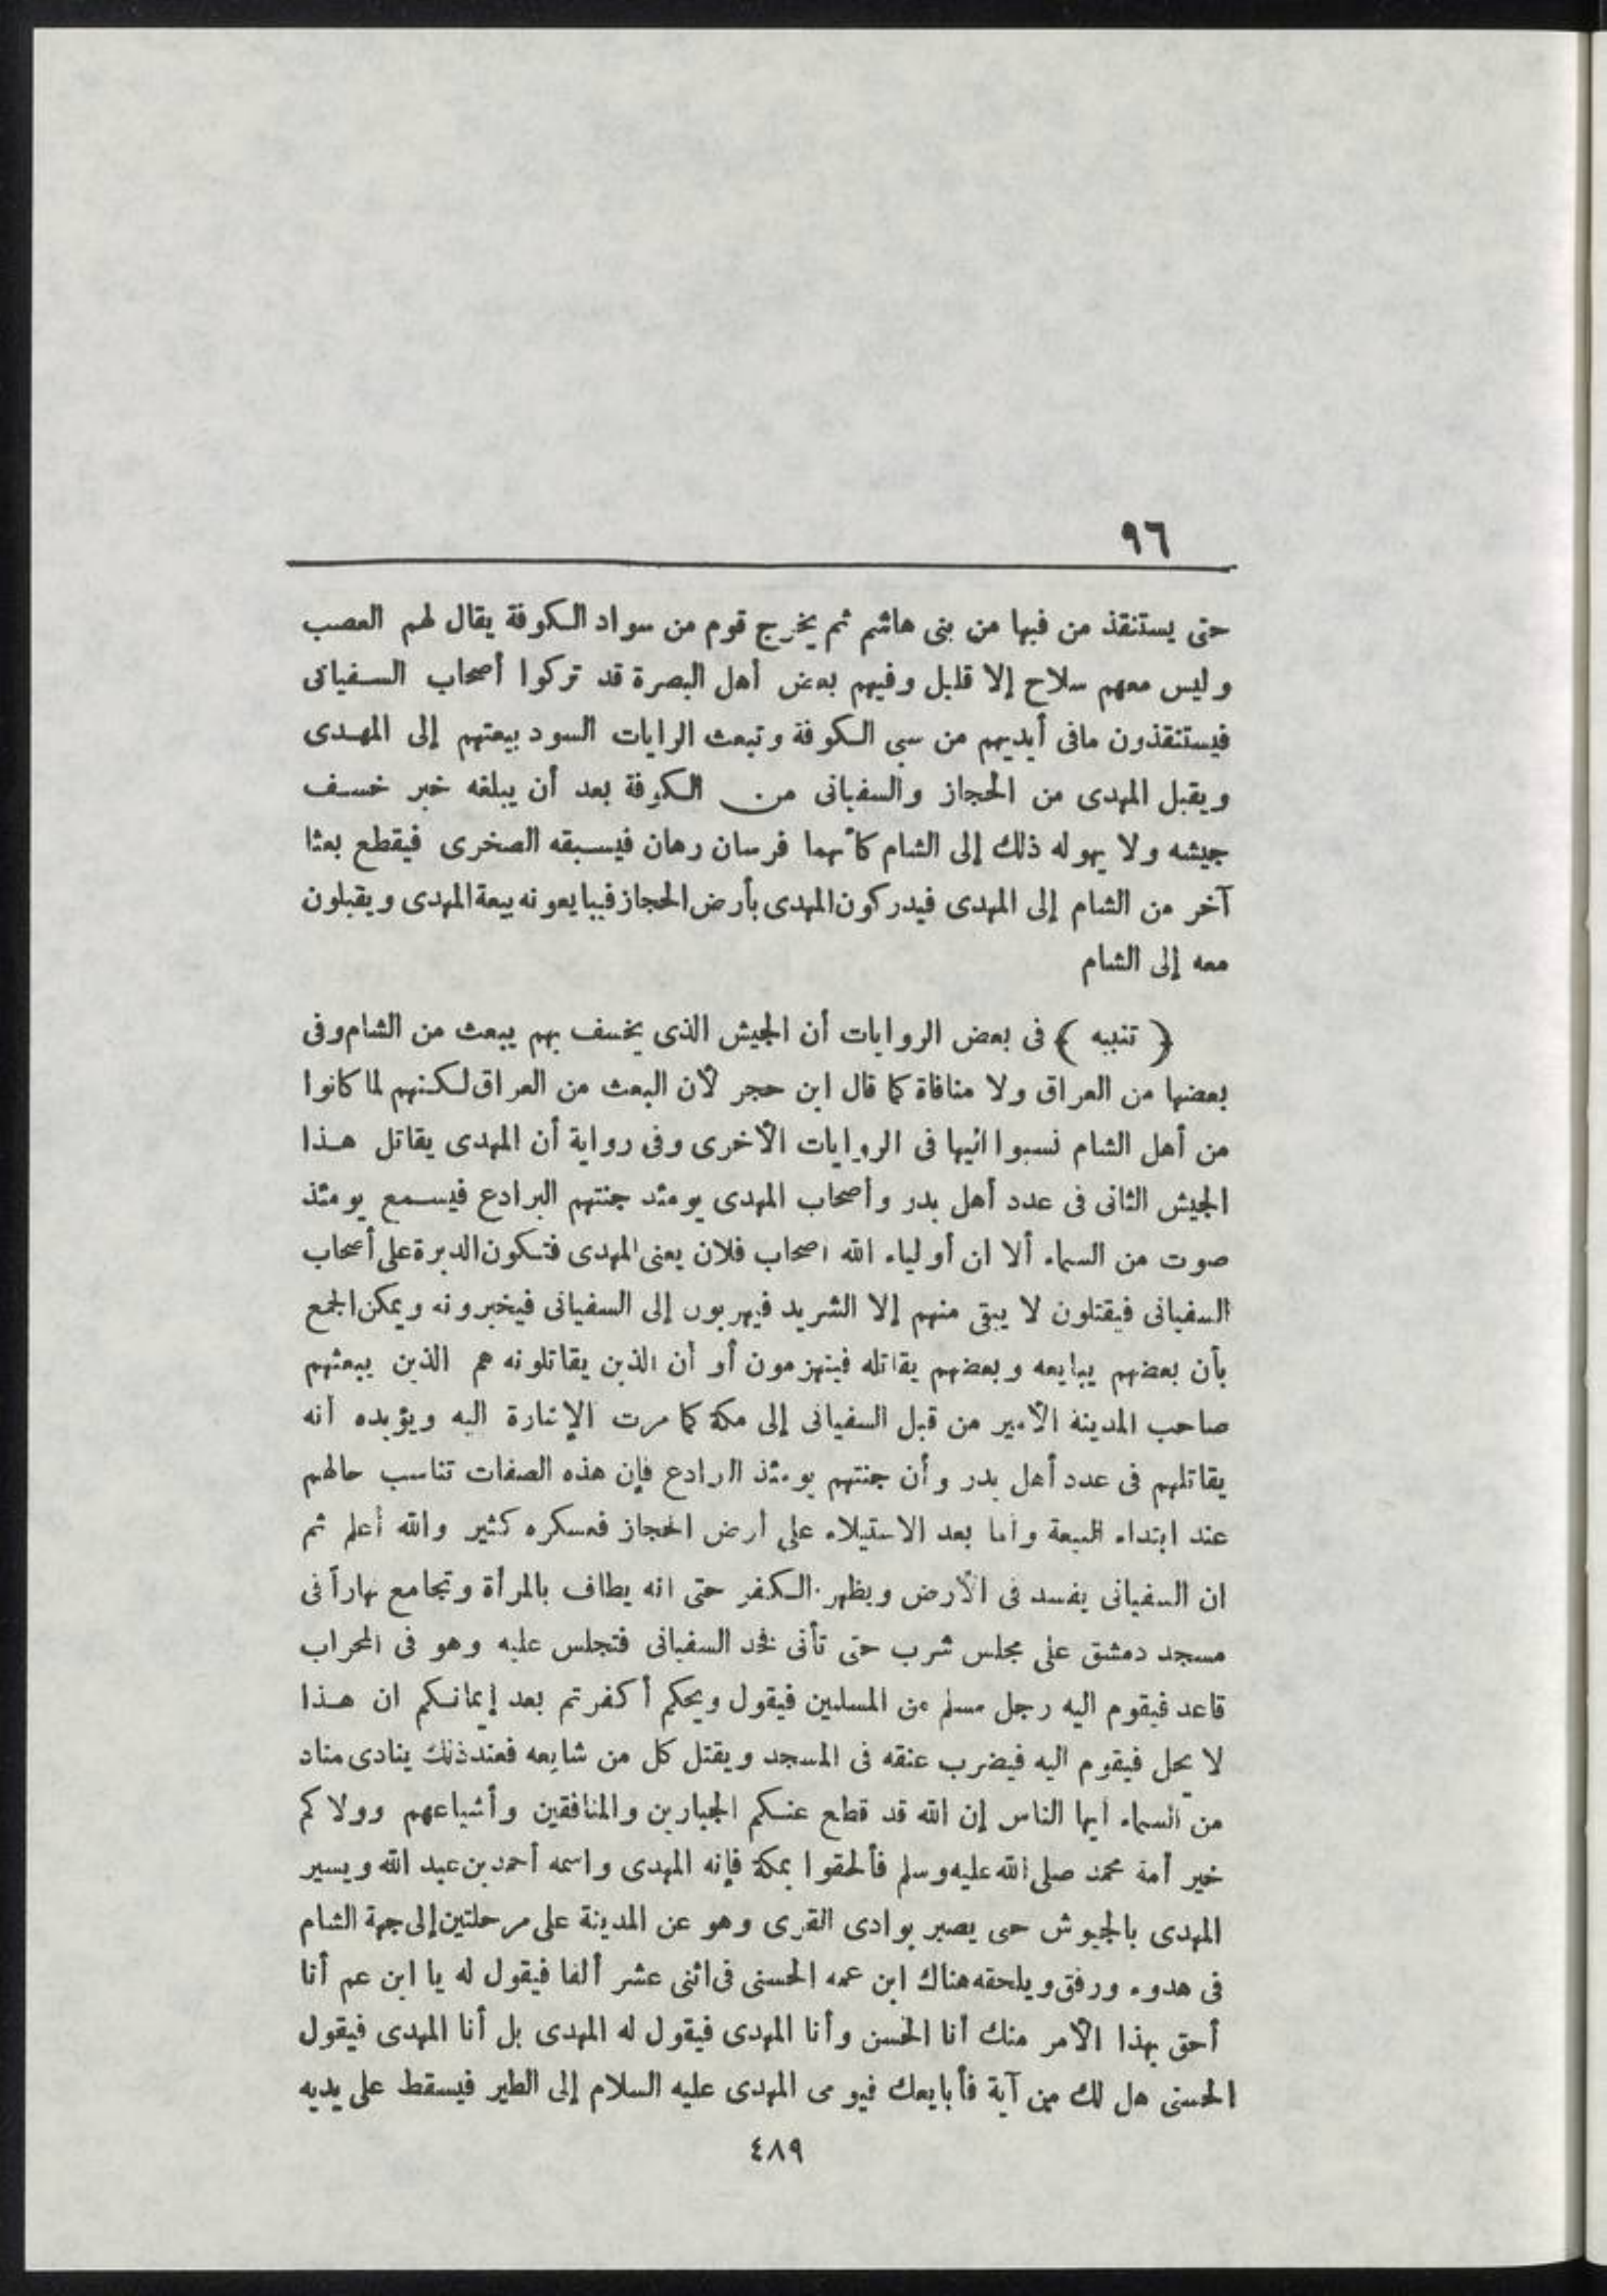 ٩٦
حتى يستنقذ من فيها من بنى هاشم ثم يخرج قوم من سواد الكوفة يقال لهم العصب
وليس معهم سلاح إلا قليل وفيهم بعض أهل البصرة قد تركوا أصحاب السفيانى
فيستنقذون مافى أيديهم من سبى الكوفة وتبعث الرايات السود ببيعتهم إلى المهدى
ويقبل المهدى من الحجاز والسفيانى من الكوفة بعد أن يبلغه خبر خسف
جيشه ولا يهوله ذلك إلى الشام كأنهما فرسان رهان فيسبقه الصخرى فيقطع بعثا
آخر من الشام إلى المهدى فيدركون المهدى بأرض الحجاز فيبايعونه بيعة المهدى ويقبلون
معه إلى الشام
﴿ تنبيه ﴾ فى بعض الروايات أن الجيش الذى يخسف بهم يبعث من الشام وفى
بعضها من العراق ولا منافاة كما قال ابن حجر لأن البعث من العراق لكنهم لما كانوا
من أهل الشام نسبوا اليها فى الروايات الأخرى وفى رواية أن المهدى يقاتل هذا
الجيش الثانى فى عدد أهل بدر وأصحاب المهدى يومئذ جنتهم البرادع فيسمع يومئذ
صوت من السماء ألا ان أولياء الله اصحاب فلان يعنى المهدى فتكون الدبرة على أصحاب
السفيانى فيقتلون لا يبقى منهم إلا الشريد فيهربون إلى السفيانى فيخبرونه ويمكن الجمع
بأن بعضهم يبايعه وبعضهم يقاتله فينهزمون أو أن الذين يقاتلونه هم الذين يبعثهم
صاحب المدينة الأمير من قبل السفيانى إلى مكة كما مرت الإشارة اليه ويؤيده أنه
يقاتلهم فى عدد أهل بدر وأن جنتهم يومئذ البرادع فإن هذه الصفات تناسب حالهم
عند ابتداء البيعة وأما بعد الاستيلاء على أرض الحجاز فعسكره كثير والله أعلم ثم
ان السفيانى يفسد فى الأرض ويظهر الكفر حتى انه يطاف بالمرأة وتجامع نهاراً فى
مسجد دمشق على مجلس شرب حتى تأتى فخذ السفيانى فتجلس عليه وهو فى المحراب
قاعد فيقوم اليه رجل مسلم من المسلمين فيقول ويحكم أكفرتم بعد إيمانكم ان هذا
لا يحل فيقوم اليه فيضرب عنقه فى المسجد ويقتل كل من شايعه فعند ذلك ينادى مناد
من السماء ايها الناس إن الله قد قطع عنكم الجبارين والمنافقين وأشياعهم وولاكم
خير أمة محمد صلى الله عليه وسلم فألحقوا بمكة فإنه المهدى واسمه أحمد بن عبد الله ويسير
المهدى بالجيوش حتى يصير بوادى القرى وهو عن المدينة على مرحلتين إلى جهة الشام
فى هدوء ورفق ويلحقه هناك ابن عمه الحسنى فى اثنى عشر ألفا فيقول له يا ابن عم أنا
أحق بهذا الأمر منك أنا ابن الحسن وأنا المهدى فيقول له المهدى بل أنا المهدى فيقول
الحسنى هل لك من آية فأبايعك فيومى المهدى عليه السلام إلى الطير فيسقط على يديه
٤٨٩